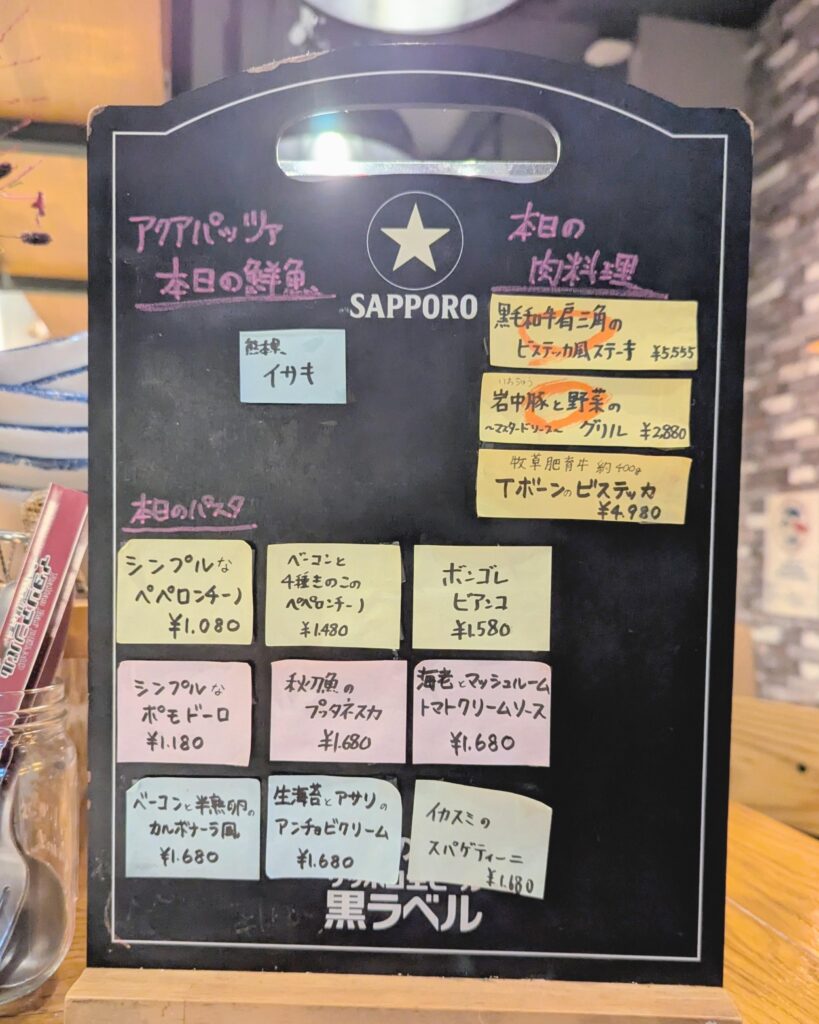 アクアパッツァ
本日の鮮魚
SAPPORO
本日の
肉料理
熊本県、
イサキ
黒毛和牛肩三角の
ビステッカ風ステーキ ¥5,555
いわちゅう
岩中豚と野菜の
～マスタードソース～ グリル ¥2,880
牧草肥育牛 約400g
Tボーンのビステッカ
¥4,980
本日のパスタ
シンプルな
ペペロンチーノ
¥1,080
ベーコンと
4種きのこの
ペペロンチーノ
¥1,480
ボンゴレ
ビアンコ
¥1,580
シンプルな
ポモドーロ
¥1,180
秋刀魚の
プッタネスカ
¥1,680
海老とマッシュルーム
トマトクリームソース
¥1,680
ベーコンと半熟卵の
カルボナーラ風
¥1,680
生海苔とアサリの
アンチョビクリーム
¥1,680
イカスミの
スパゲティーニ
¥1,680
黒ラベル